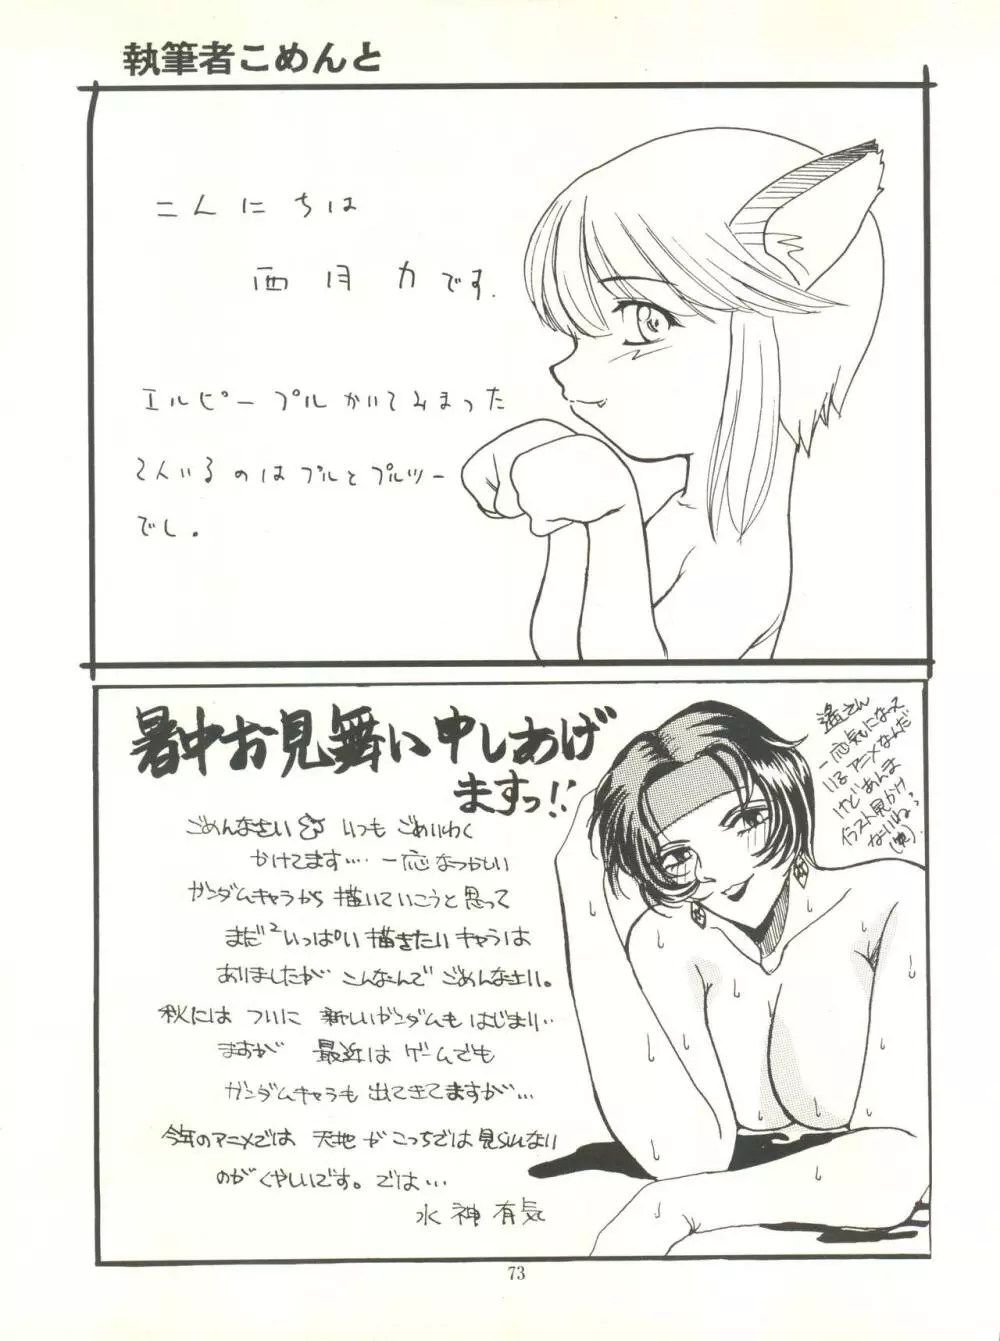 執筆者こめんと
こんにちは
西月力です.
エルピープルかいてみまった
2人いるのはプルとプルツー
でし。
暑中お見舞い申しあげ
ますっ!!
ごめんなさい いつもごめいわく
かけてます…. 一応なつかしい
ガンダムキャラから描いていこうと思って
まだ²いっぱい描きたいキャラは
ありましたが こんなんでごめんなさい。
秋には ついに 新しいガンダムもはじまり…
ますが 最近は ゲームでも
ガンダムキャラも出てきてますが…
今年のアニメでは 天地がこっちでは見られない
のがくやしいです。では…
水神有気
遙さん
一応気になース
いるアニメなんだ
けどあんま
イラスト見かけ
ないねっ
73